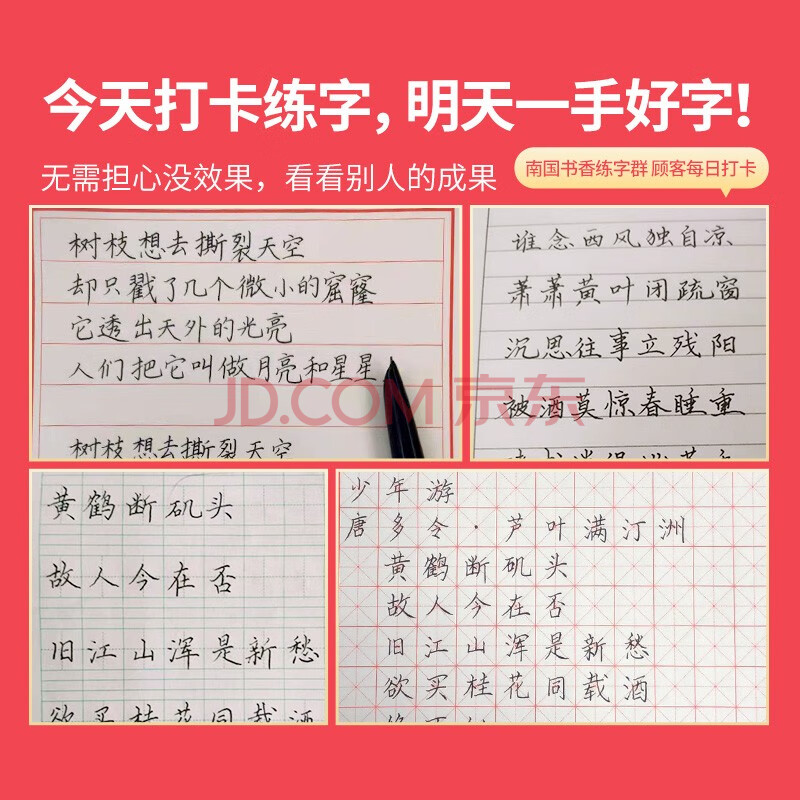 今天打卡练字，明天一手好字！
无需担心没效果，看看别人的成果
南国书香练字群 顾客每日打卡
树枝想去撕裂天空
却只戳了几个微小的窟窿
它透出天外的光亮
人们把它叫做月亮和星星
树枝想去撕裂天空
谁念西风独自凉
萧萧黄叶闭疏窗
沉思往事立残阳
被酒莫惊春睡重
JD.COM 京东
黄鹤断矶头
故人今在否
旧江山浑是新愁
欲买桂花同载酒
少年游
唐多令·芦叶满汀洲
黄鹤断矶头
故人今在否
旧江山浑是新愁
欲买桂花同载酒